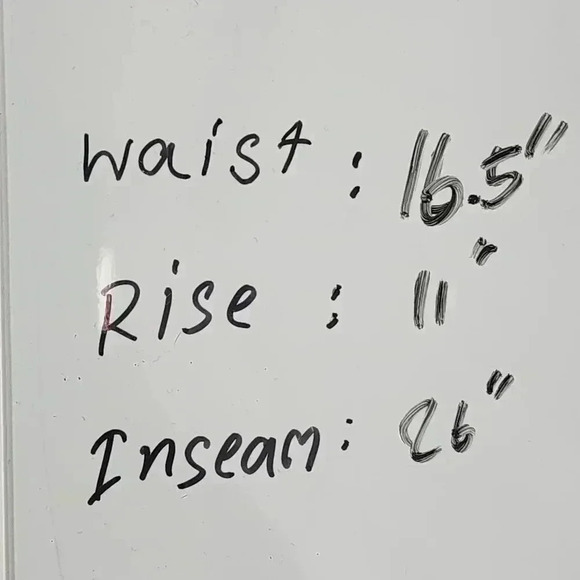 Waist : 16.5"
Rise : 11"
Inseam: 26"